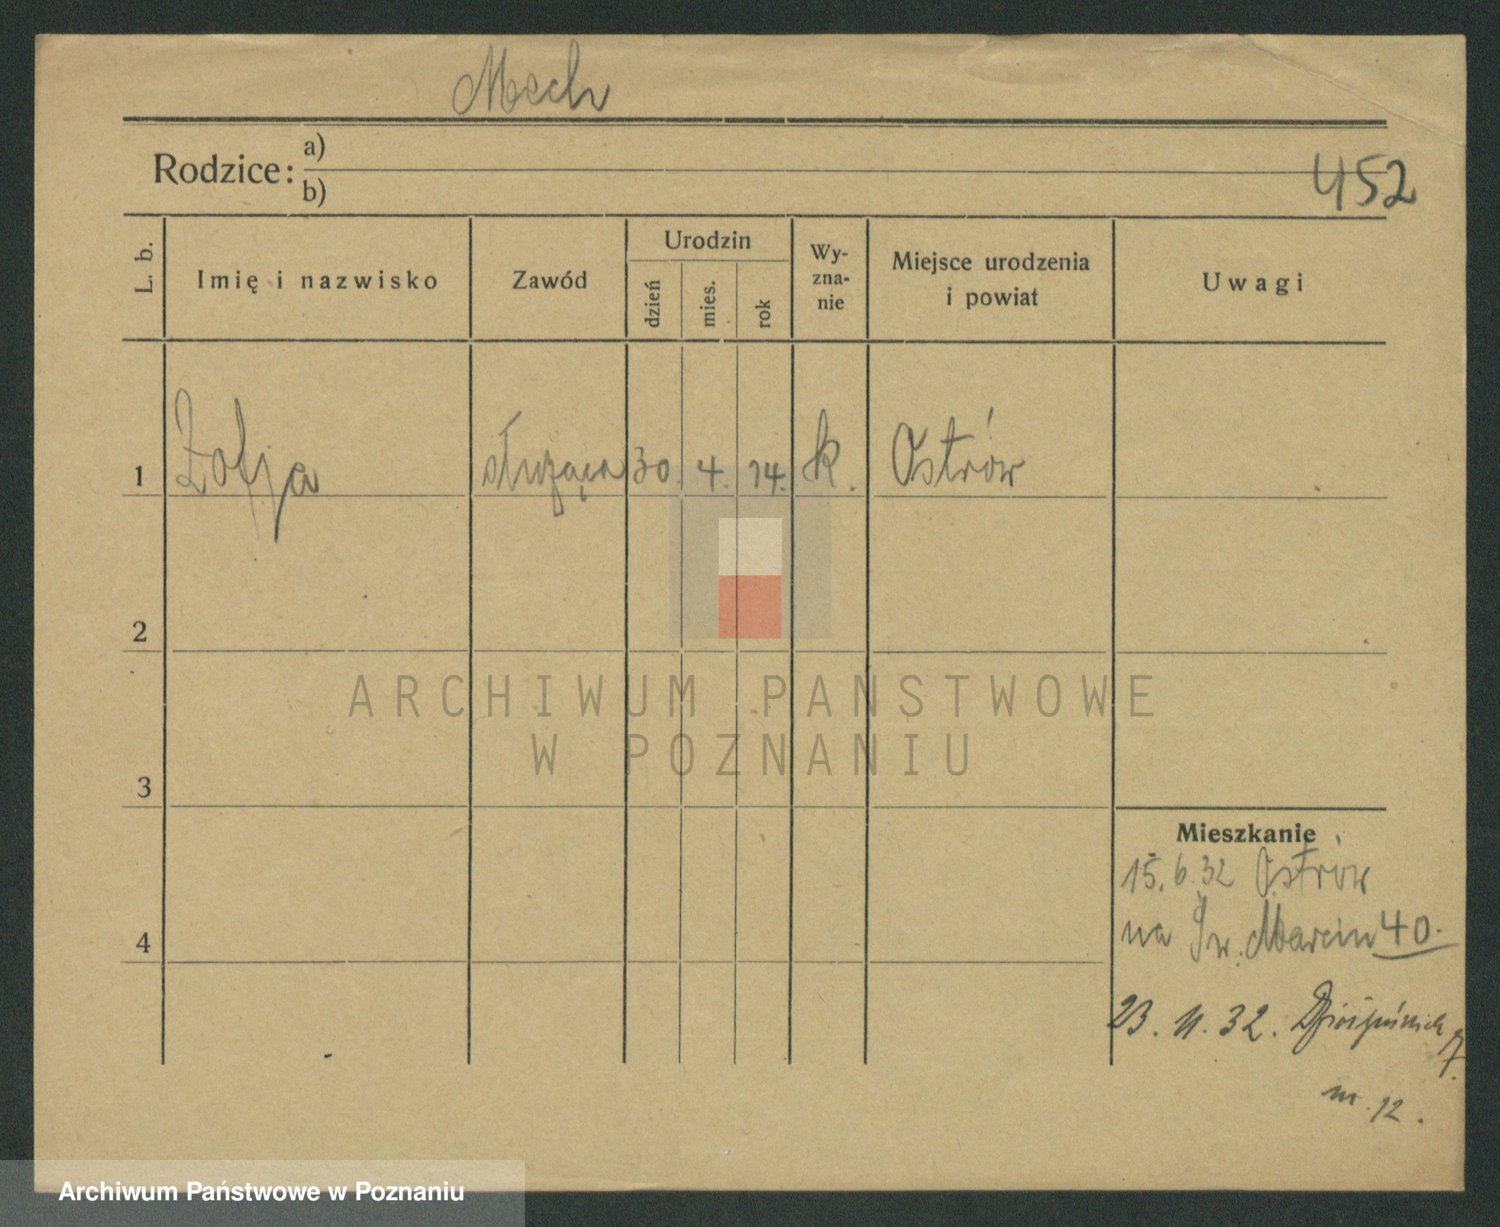 Mech
Rodzice: a)
b)
452
L. b.
Imię i nazwisko
Zawód
Urodzin
dzień
mies.
rok
Wy-
zna-
nie
Miejsce urodzenia
i powiat
Uwagi
1 Zofja służąca 30. 4. 14. k. Ostrów
2
3
4
Mieszkanie
15.6.32 Ostrów
na Św. Marcin 40.
23. 11. 32.
7.
m. 12.
ARCHIWUM PAŃSTWOWE
W POZNANIU
Archiwum Państwowe w Poznaniu